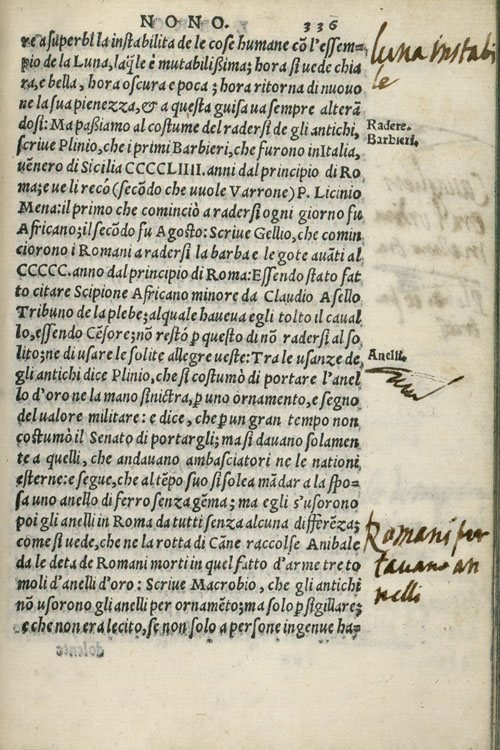 NONO. 336
re a superbI la instabilita de le cose humane cō l'essem-
pio de la Luna, laq̃le è mutabilißima; hora si uede chia
ra, e bella, hora oscura e poca; hora ritorna di nuouo
ne la sua pienezza, & a questa guisa ua sempre alterā
dosi: Ma paßiamo al costume del radersi de gli antichi,
scriue Plinio, che i primi Barbieri, che furono in Italia,
uēnero di Sicilia CCCCLIIII. anni dal principio di Ro
ma; e ue li recó (secōdo che uuole Varrone) P. Licinio
Mena: il primo che cominciò a radersi ogni giorno fu
Africano; il secōdo fu Agosto: Scriue Gellio, che comin
ciorono i Romani a radersi la barba e le gote auāti al
CCCCC. anno dal principio di Roma: Essendo stato fat
to citare Scipione Africano minore da Claudio Asello
Tribuno de la plebe; al quale haueua egli tolto il caual
lo, essendo Cēsore; nō restó p̱ questo di nō radersi al so
lito; ne di usare le solite allegre ueste: Tra le usanze de
gli antichi dice Plinio, che si costumò di portare l'anel
lo d'oro ne la mano sinistra, p̱ uno ornamento, e segno
del ualore militare: e dice, che p̱ un gran tempo non
costumò il Senato di portargli; ma si dauano solamen
te a quelli, che andauano ambasciatori ne le nationi
esterne: e segue, che al tēpo suo si solea mādar a la spo-
sa uno anello di ferro senza gēma; ma egli s'usorono
poi gli anelli in Roma da tutti senza alcuna differēza;
come si uede, che ne la rotta di Cāne raccolse Anibale
da le deta de Romani morti in quel fatto d'arme tre to
moli d'anelli d'oro: Scriue Macrobio, che gli antichi
nō usorono gli anelli per ornamēto; ma solo p̱ sigillare;
e che non era lecito, se non solo a persone ingenue ha-
luna instabi
le
Radere.
Barbieri.
Anelli.
Romani por
tauano an
nelli